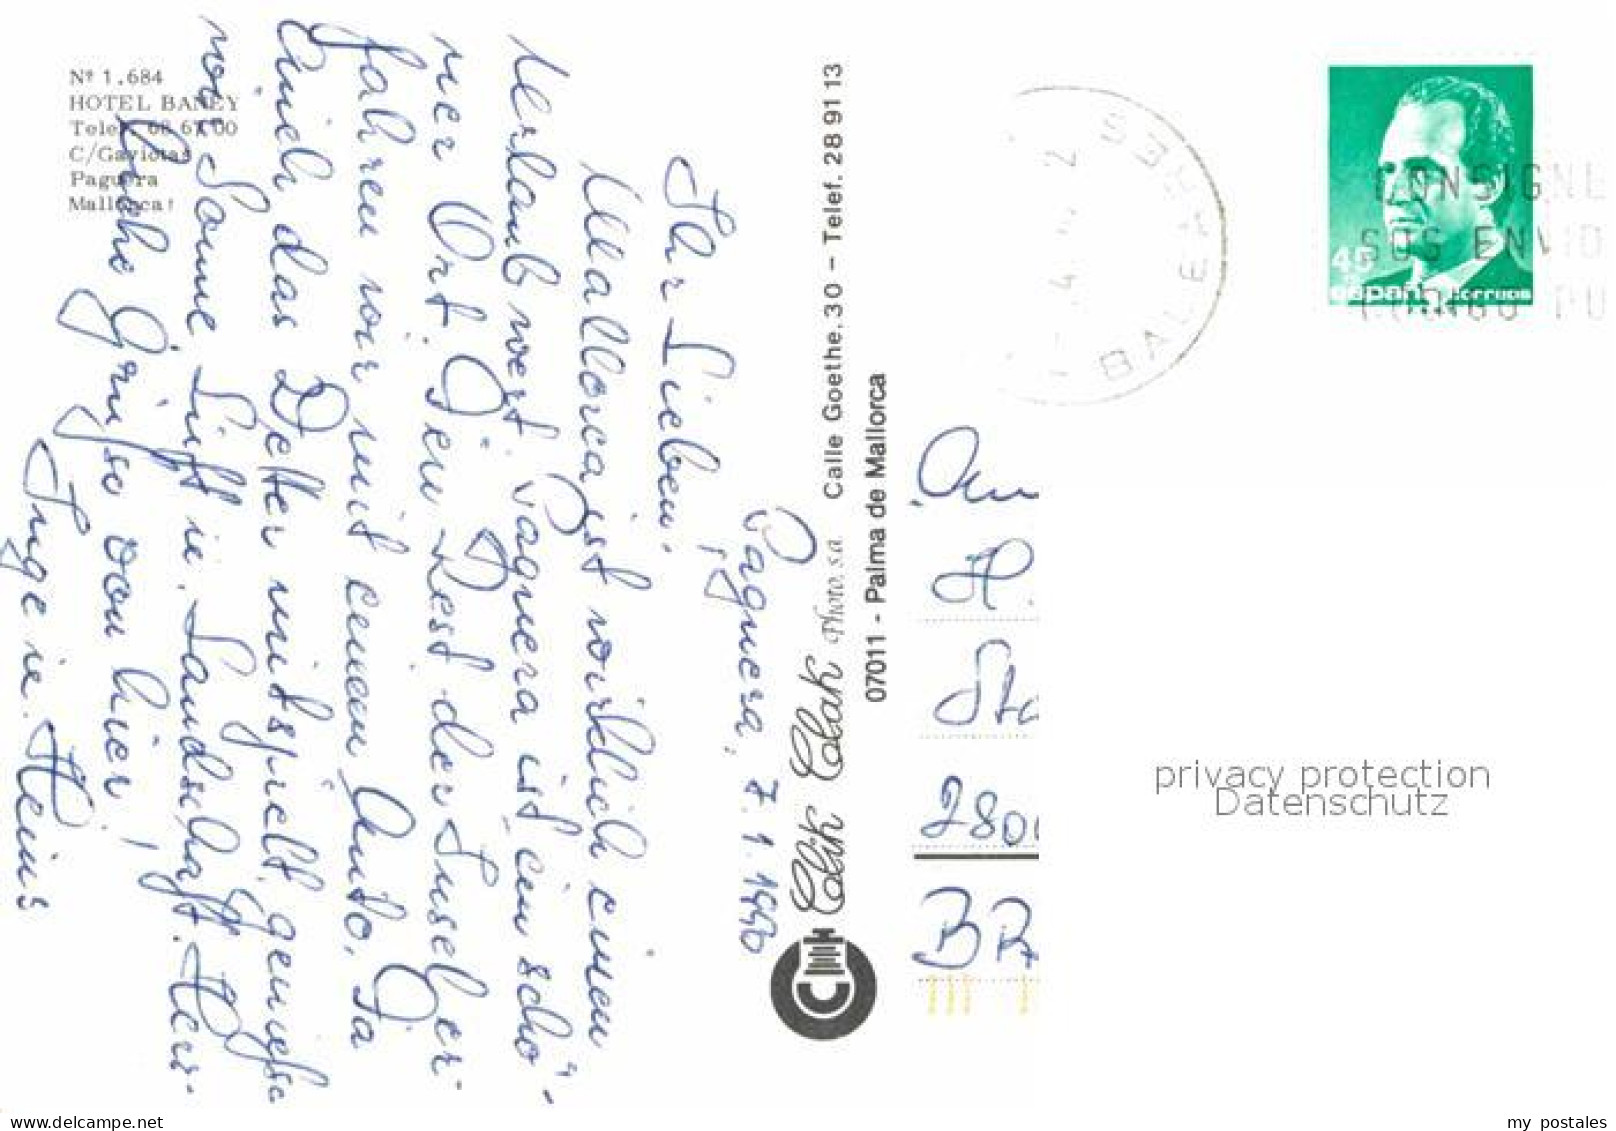 Nº 1.684
HOTEL BANEY
Telef. 68 67 00
C/Gaviotas
Paguera
Mallorca
Paguera, 7.1.1990
Ihr Lieben!
Mallorca ist wirklich einen
Urlaub wert. Paguera ist ein schö-
ner Ort. Den Rest der Insel er-
fahren wir mit einem Auto. Da
auch das Wetter mitspielt, genießen
wir Sonne Luft u. Landschaft. Herz-
liche Grüße von hier,
Inge u. Heinz
Clik Clak Photo, s.a. Calle Goethe, 30 - Telef. 28 91 13
07011 - Palma de Mallorca
BALEARES
CONSIGNE
SUS ENVIO
CODIGO PO
45
España correos
H.
280
privacy protection
Datenschutz
my postales